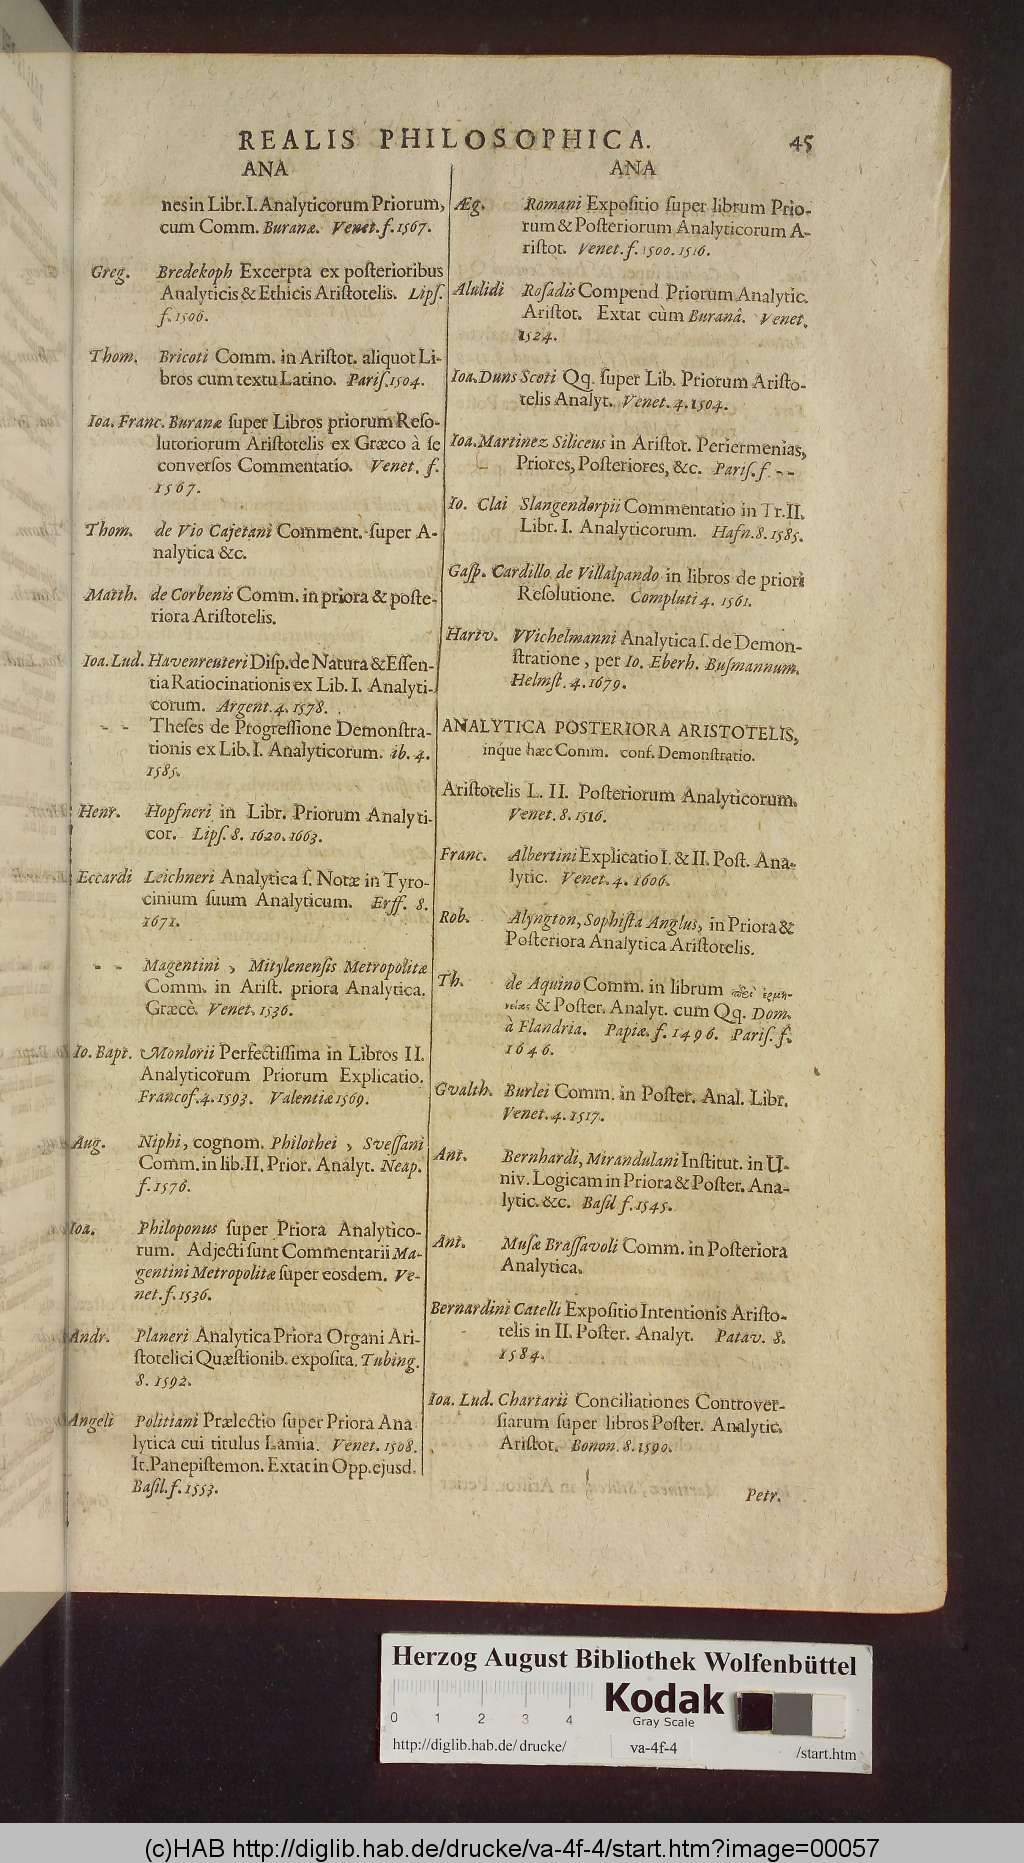 REALIS PHILOSOPHICA. 45
ANA
nes in Libr. I. Analyticorum Priorum,
cum Comm. Buranæ. Venet. f. 1567.
Greg. Bredekoph Excerpta ex posterioribus
Analyticis & Ethicis Aristotelis. Lips.
f. 1506.
Thom. Bricoti Comm. in Aristot. aliquot Li-
bros cum textu Latino. Paris. 1504.
Ioa. Franc. Buranæ super Libros priorum Reso-
lutoriorum Aristotelis ex Græco à se
conversos Commentatio. Venet. f.
1567.
Thom. de Vio Cajetani Comment. super A-
nalytica &c.
Matth. de Corbenis Comm. in priora & poste-
riora Aristotelis.
Ioa. Lud. Havenreuteri Disp. de Natura & Essen-
tia Ratiocinationis ex Lib. I. Analyti-
corum. Argent. 4. 1578.
- - Theses de Progressione Demonstra-
tionis ex Lib. I. Analyticorum. ib. 4.
1585.
Henr. Hopfneri in Libr. Priorum Analyti-
cor. Lips. 8. 1620. 1663.
Eccardi Leichneri Analytica s. Notæ in Tyro-
cinium suum Analyticum. Erff. 8.
1671.
- - Magentini, Mitylenensis Metropolitæ
Comm. in Arist. priora Analytica.
Græcè. Venet. 1536.
Io. Bapt. Monlorii Perfectissima in Libros II.
Analyticorum Priorum Explicatio.
Francof. 4. 1593. Valentiæ 1569.
Aug. Niphi, cognom. Philothei, Svessani
Comm. in lib. II. Prior. Analyt. Neap.
f. 1576.
Ioa. Philoponus super Priora Analytico-
rum. Adjecti sunt Commentarii Ma-
gentini Metropolitæ super eosdem. Ve-
net. f. 1536.
Andr. Planeri Analytica Priora Organi Ari-
stotelici Quæstionib. exposita. Tubing.
8. 1592.
Angeli Politiani Prælectio super Priora Ana
lytica cui titulus Lamia. Venet. 1508.
It. Panepistemon. Extat in Opp. ejusd.
Basil. f. 1553.
ANA
Æg. Romani Expositio super librum Prio-
rum & Posteriorum Analyticorum A-
ristot. Venet. f. 1500. 1516.
Alulidi Rosadis Compend. Priorum Analytic.
Aristot. Extat cùm Buranâ. Venet.
1524.
Ioa. Duns Scoti Qq. super Lib. Priorum Aristo-
telis Analyt. Venet. 4. 1504.
Ioa. Martinez Siliceus in Aristot. Periermenias,
Priores, Posteriores, &c. Paris. f. - -
Io. Clai Slangendorpii Commentatio in Tr. II.
Libr. I. Analyticorum. Hafn. 8. 1585.
Gasp. Cardillo de Villalpando in libros de priori
Resolutione. Compluti 4. 1561.
Hartv. VVichelmanni Analytica s. de Demon-
stratione, per Io. Eberh. Busmannum.
Helmst. 4. 1679.
ANALYTICA POSTERIORA ARISTOTELIS,
inque hæc Comm. conf. Demonstratio.
Aristotelis L. II. Posteriorum Analyticorum.
Venet. 8. 1516.
Franc. Albertini Explicatio I. & II. Post. Ana-
lytic. Venet. 4. 1606.
Rob. Alyngton, Sophista Anglus, in Priora &
Posteriora Analytica Aristotelis.
Th. de Aquino Comm. in librum περὶ ἑρμη-
νείας & Poster. Analyt. cum Qq. Dom.
à Flandria. Papiæ. f. 1496. Paris. f.
1646.
Gvalth. Burlei Comm. in Poster. Anal. Libr.
Venet. 4. 1517.
Ant. Bernhardi, Mirandulani Institut. in U-
niv. Logicam in Priora & Poster. Ana-
lytic. &c. Basil f. 1545.
Ant. Musæ Brassavoli Comm. in Posteriora
Analytica.
Bernardini Catelli Expositio Intentionis Aristo-
telis in II. Poster. Analyt. Patav. 8.
1584.
Ioa. Lud. Chartarii Conciliationes Controver-
siarum super libros Poster. Analytic.
Aristot. Bonon. 8. 1590.
Petr.
Herzog August Bibliothek Wolfenbüttel
0 1 2 3 4
Kodak
Gray Scale
http://diglib.hab.de/drucke/ va-4f-4 /start.htm
(c)HAB http://diglib.hab.de/drucke/va-4f-4/start.htm?image=00057